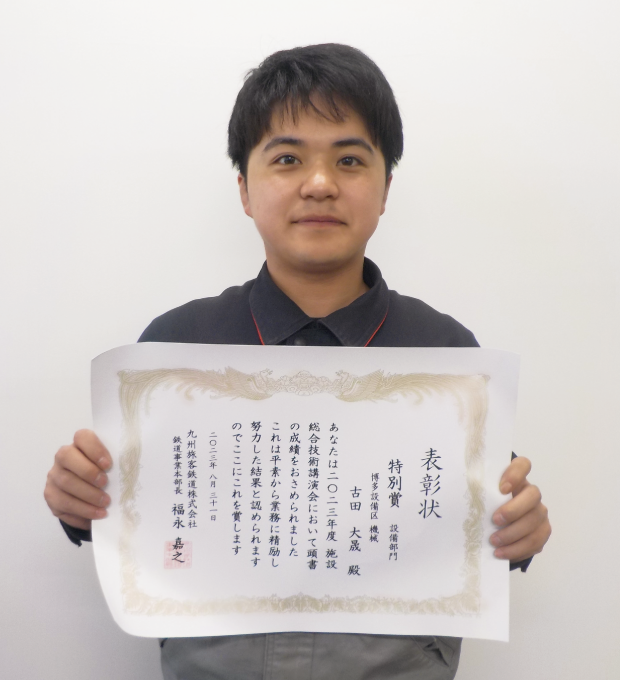 表彰状
特別賞 設備部門
博多設備区 機械
古田 大晟 殿
あなたは二〇二三年度 施設
総合技術講演会において頭書
の成績をおさめられました
これは平素から業務に精励し
努力した結果と認められます
のでここにこれを賞します
二〇二三年 八月 三十一日
九州旅客鉄道株式会社
鉄道事業本部長 福永 嘉之